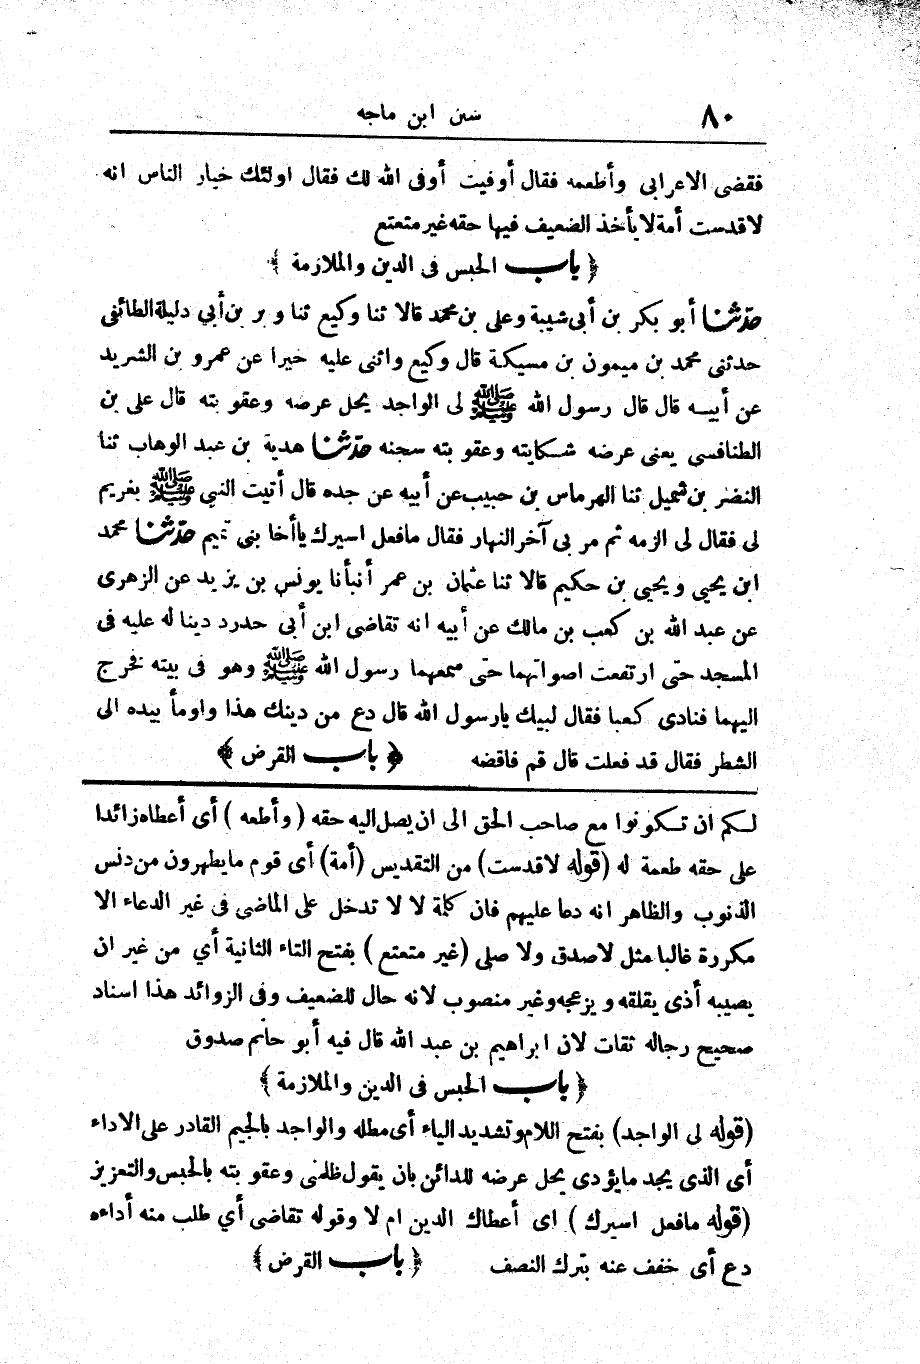 ٨٠
سنن ابن ماجه
فقضى الاعرابى وأطعمه فقال أوفيت أوفى الله لك فقال اولئك خيار الناس انه
لاقدست أمة لايأخذ الضعيف فيها حقه غير متعتع
﴿ باب الحبس فى الدين والملازمة ﴾
حدثنا أبو بكر بن أبى شيبة وعلى بن محمد قالا ثنا وكيع ثنا وبر بن أبي دليلة الطائفى
حدثنى محمد بن ميمون بن مسيكة قال وكيع واثنى عليه خيرا عن عمرو بن الشريد
عن أبيه قال قال رسول الله ﷺ لى الواجد يحل عرضه وعقوبته قال على بن
الطنافسى يعنى عرضه شكايته وعقوبته سجنه حدثنا هدية بن عبد الوهاب ثنا
النضر بن شميل ثنا الهرماس بن حبيب عن أبيه عن جده قال أتيت النبي ﷺ بغريم
لى فقال لى الزمه ثم مر بى آخر النهار فقال مافعل اسيرك ياأخا بنى تميم حدثنا محمد
ابن يحيى ويحيى بن حكيم قالا ثنا عثمان بن عمر أنبأنا يونس بن يزيد عن الزهرى
عن عبد الله بن كعب بن مالك عن أبيه انه تقاضى ابن أبى حدرد دينا له عليه فى
المسجد حتى ارتفعت اصواتهما حتى سمعهما رسول الله ﷺ وهو فى بيته فخرج
اليهما فنادى كعبا فقال لبيك يارسول الله قال دع من دينك هذا واومأ بيده الى
الشطر فقال قد فعلت قال قم فاقضه ﴿ باب القرض ﴾
لكم ان تكونوا مع صاحب الحق الى ان يصل اليه حقه ( وأطعه ) أى أعطاه زائدا
على حقه طعمة له (قوله لاقدست) من التقديس (أمة) أى قوم مايطهرون من دنس
الذنوب والظاهر انه دعا عليهم فان كلمة لا لا تدخل على الماضى فى غير الدعاء الا
مكررة غالبا مثل لاصدق ولا صلى (غير متعتع ) بفتح التاء الثانية أي من غير ان
يصيبه أذى يقلقه ويزعجه وغير منصوب لانه حال للضعيف وفى الزوائد هذا اسناد
صحيح رجاله ثقات لان ابراهيم بن عبد الله قال فيه أبو حاتم صدوق
﴿ باب الحبس فى الدين والملازمة ﴾
(قوله لى الواجد) بفتح اللام وتشديد الياء أى مطله والواجد بالجيم القادر على الاداء
أى الذى يجد مايؤدى يحل عرضه للدائن بان يقول ظلمنى وعقوبته بالحبس والتعزيز
(قوله مافعل اسيرك ) اى أعطاك الدين ام لا وقوله تقاضى أي طلب منه أداءه
دع أى خفف عنه بترك النصف ﴿ باب القرض ﴾